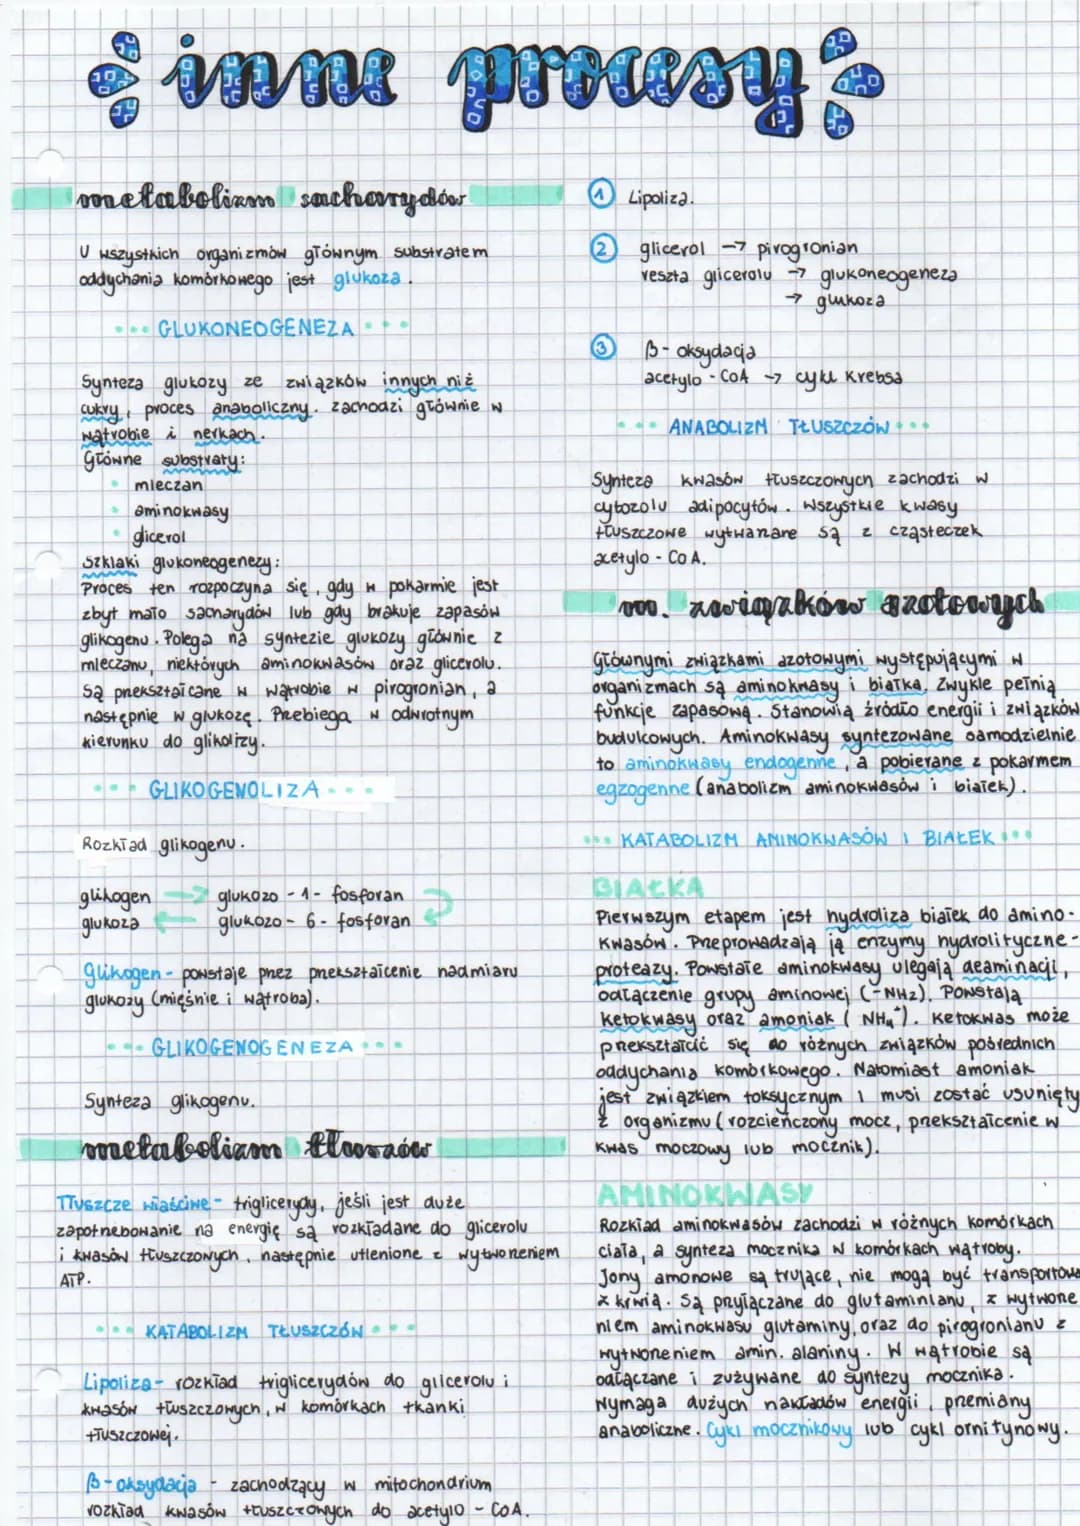 inne procesy
metabolizm sacharydów
U wszystkich organizmów głównym substratem
oddychania komórkowego jest glukoza.
GLUKONEOGENEZA
Synteza glukozy ze związków innych niż
cukry, proces anaboliczny. zachodzi głównie w
wątrobie i nerkach.
Główne substraty:
mleczan
aminokwasy
glicerol
Szklaki glukoneogenezy:
Proces ten rozpoczyna się, gdy w pokarmie jest
zbyt mało sacharydów lub gdy brakuje zapasów
glikogenu. Polega na syntezie glukozy głównie z
mleczanu, niektórych aminokwasów oraz glicerolu.
Są przekształcane w wątrobie w pirogronian, a
następnie w glukozę. Przebiega w odwrotnym
kierunku do glikolizy.
GLIKOGENOLIZA
Rozkład glikogenu.
glikogen → glukozo - 1 - fosforan
glukoza ← glukozo - 6 - fosforan
Glikogen - powstaje przez przekształcenie nadmiaru
glukozy (mięśnie i wątroba).
GLIKOGENOGENEZA
Synteza glikogenu.
metabolizm tłuszzów
Tłuszcze właściwe - triglicerydy, jeśli jest duże
zapotrzebowanie na energię są rozkładane do glicerolu
i kwasów tłuszczonych, następnie utlenione z wytworzeniem
ATP.
KATABOLIZM TŁUSZCZÓW
Lipoliza - rozkład triglicerydów do glicerolu i
kwasów tłuszczonych, w komórkach tkanki
tłuszczowej.
β - oksydacja - zachodzący w mitochondrium
rozkład kwasów tłuszczonych do acetylo - CoA.
1 Lipoliza.
2 glicerol → pirogronian
reszta glicerolu → glukoneogeneza
→ glukoza
3 β - oksydacja
acetylo - CoA → cykl Krebsa
ANABOLIZM TŁUSZCZÓW
Synteza kwasów tłuszczowych zachodzi w
cytozolu adipocytów. Wszystkie kwasy
tłuszczowe wytwarzane są z cząsteczek
acetylo - CoA.
m. związków azotowych
Głównymi związkami azotowymi występującymi w
organizmach są aminokwasy i białka. Zwykle pełnią
funkcje zapasową. Stanowią źródło energii i związków
budulcowych. Aminokwasy syntezowane samodzielnie
to aminokwasy endogenne, a pobierane z pokarmem
egzogenne (anabolizm aminokwasów i białek).
KATABOLIZM AMINOKWASÓW I BIAŁEK
BIAŁKA
Pierwszym etapem jest hydroliza białek do amino-
kwasów. Przeprowadzają ją enzymy hydrolityczne -
proteazy. Powstałe aminokwasy ulegają deaminacji,
odłączenie grupy aminowej (-NH2). Powstają
ketokwasy oraz amoniak (NH4+). Ketokwas może
przekształcić się do różnych związków pośrednich
oddychania komórkowego. Natomiast amoniak
jest związkiem toksycznym i musi zostać usunięty
z organizmu (rozcieńczony mocz, przekształcenie w
kwas moczowy lub mocznik).
AMINOKWASY
Rozkład aminokwasów zachodzi w różnych komórkach
ciała, a synteza mocznika w komórkach wątroby.
Jony amonowe są trujące, nie mogą być transportowa
z krwią. Są przyłączane do glutaminianu, z wytworze
niem aminokwasu glutaminy, oraz do pirogronianu z
wytworzeniem amin. alaniny. W wątrobie są
odłączane i zużywane do syntezy mocznika.
Wymaga dużych nakładów energii, przemiany
anaboliczne. Cykl mocznikowy lub cykl ornitynowy.